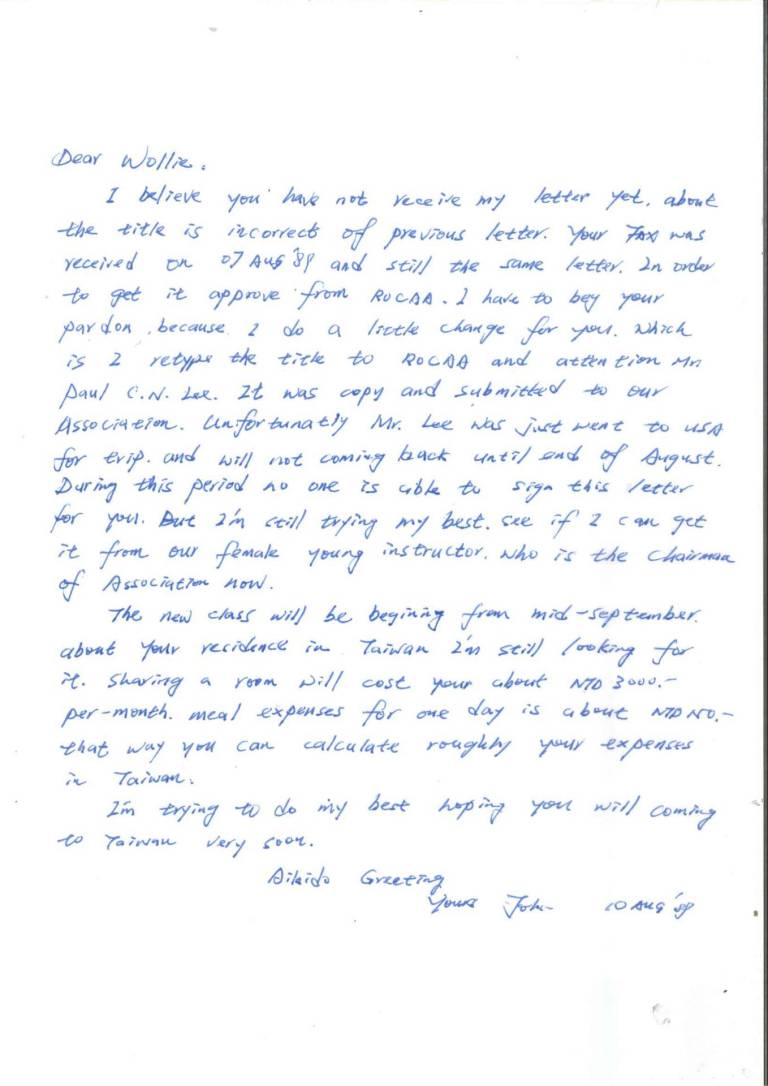 Dear Wollie.
I believe you have not receive my letter yet. about
the title is incorrect of previous letter. Your FAX was
received on 07 Aug '89 and still the same letter. In order
to get it approve from ROCAA. I have to beg your
pardon, because I do a little change for you. Which
is I retype the title to ROCAA and attention Mr.
Paul C.N. Lee. It was copy and submitted to our
Association. Unfortunatly Mr. Lee was just went to USA
for trip. and will not coming back until end of August.
During this period no one is able to sign this letter
for you. But I'm still trying my best. see if I can get
it from our female young instructor. who is the Chairman
of Association now.
The new class will be begining from mid-September.
about your residence in Taiwan I'm still looking for
it. Sharing a room will cost your about NTD 3000.-
per-month. meal expenses for one day is about NTD 150.-
that way you can calculate roughly your expenses
in Taiwan.
I'm trying to do my best hoping you will coming
to Taiwan very soon.
Aikido Greeting
Yours John 10 Aug '89